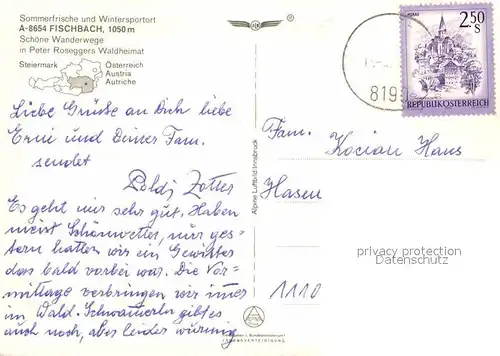 Sommerfrische und Wintersportort
A-8654 FISCHBACH, 1050 m
Schöne Wanderwege
in Peter Roseggers Waldheimat
Steiermark
Österreich
Austria
Autriche
Liebe Grüße an Dich liebe
Erni und Deiner Fam.
sendet
Poldi Zotter
Es geht mir sehr gut, Haben
meist Schönwetter, nur ges-
tern hatten wir ein Gewitter
das bald vorbei war. Die Vor-
mittage verbringen wir immer
im Wald. Schwammerln gibt es
auch noch, aber leider wurmig.
Alpine Luftbild Innsbruck
LANDESVERTEIDIGUNG
819
2.50
S
REPUBLIK ÖSTERREICH
Fam.
Kocian Hans
Hasen
1110
privacy protection
Datenschutz